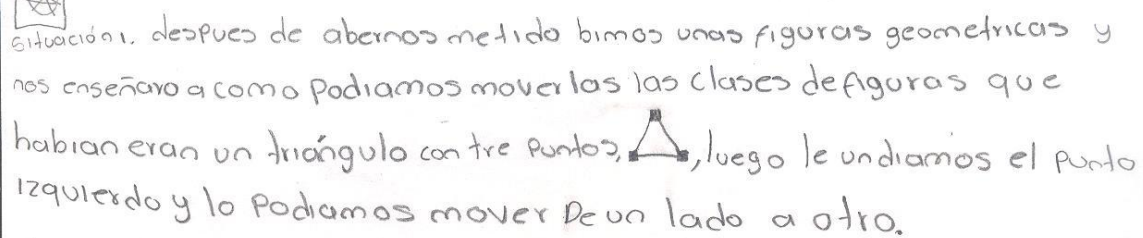 situación 1. despues de abernos metido bimos unas figuras geometricas y
nos enseñaro a como podiamos moverlas las clases de figuras que
habian eran un triángulo con tre puntos, , luego le undiamos el punto
izquierdo y lo podiamos mover De un lado a otro.